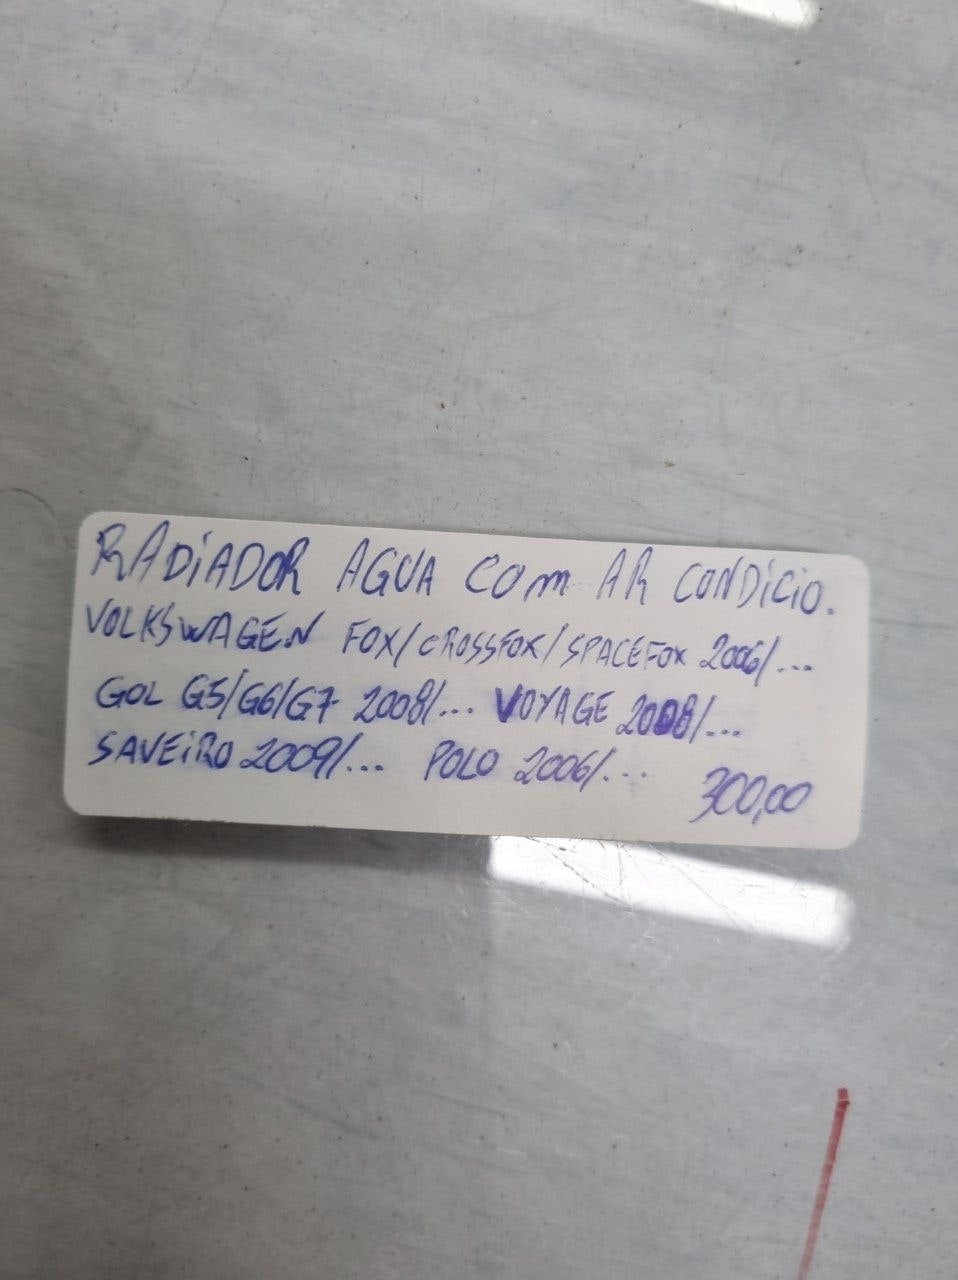 RADiADOR AGUA COm AR CONDiCiO.
VOLKSWAGEN FOX/CROSSFOX/SPACEFOX 2006/...
GOL G5/G6/G7 2008/... VOYAGE 2008/...
SAVEiRO 2009/... POLO 2006/...
300,00